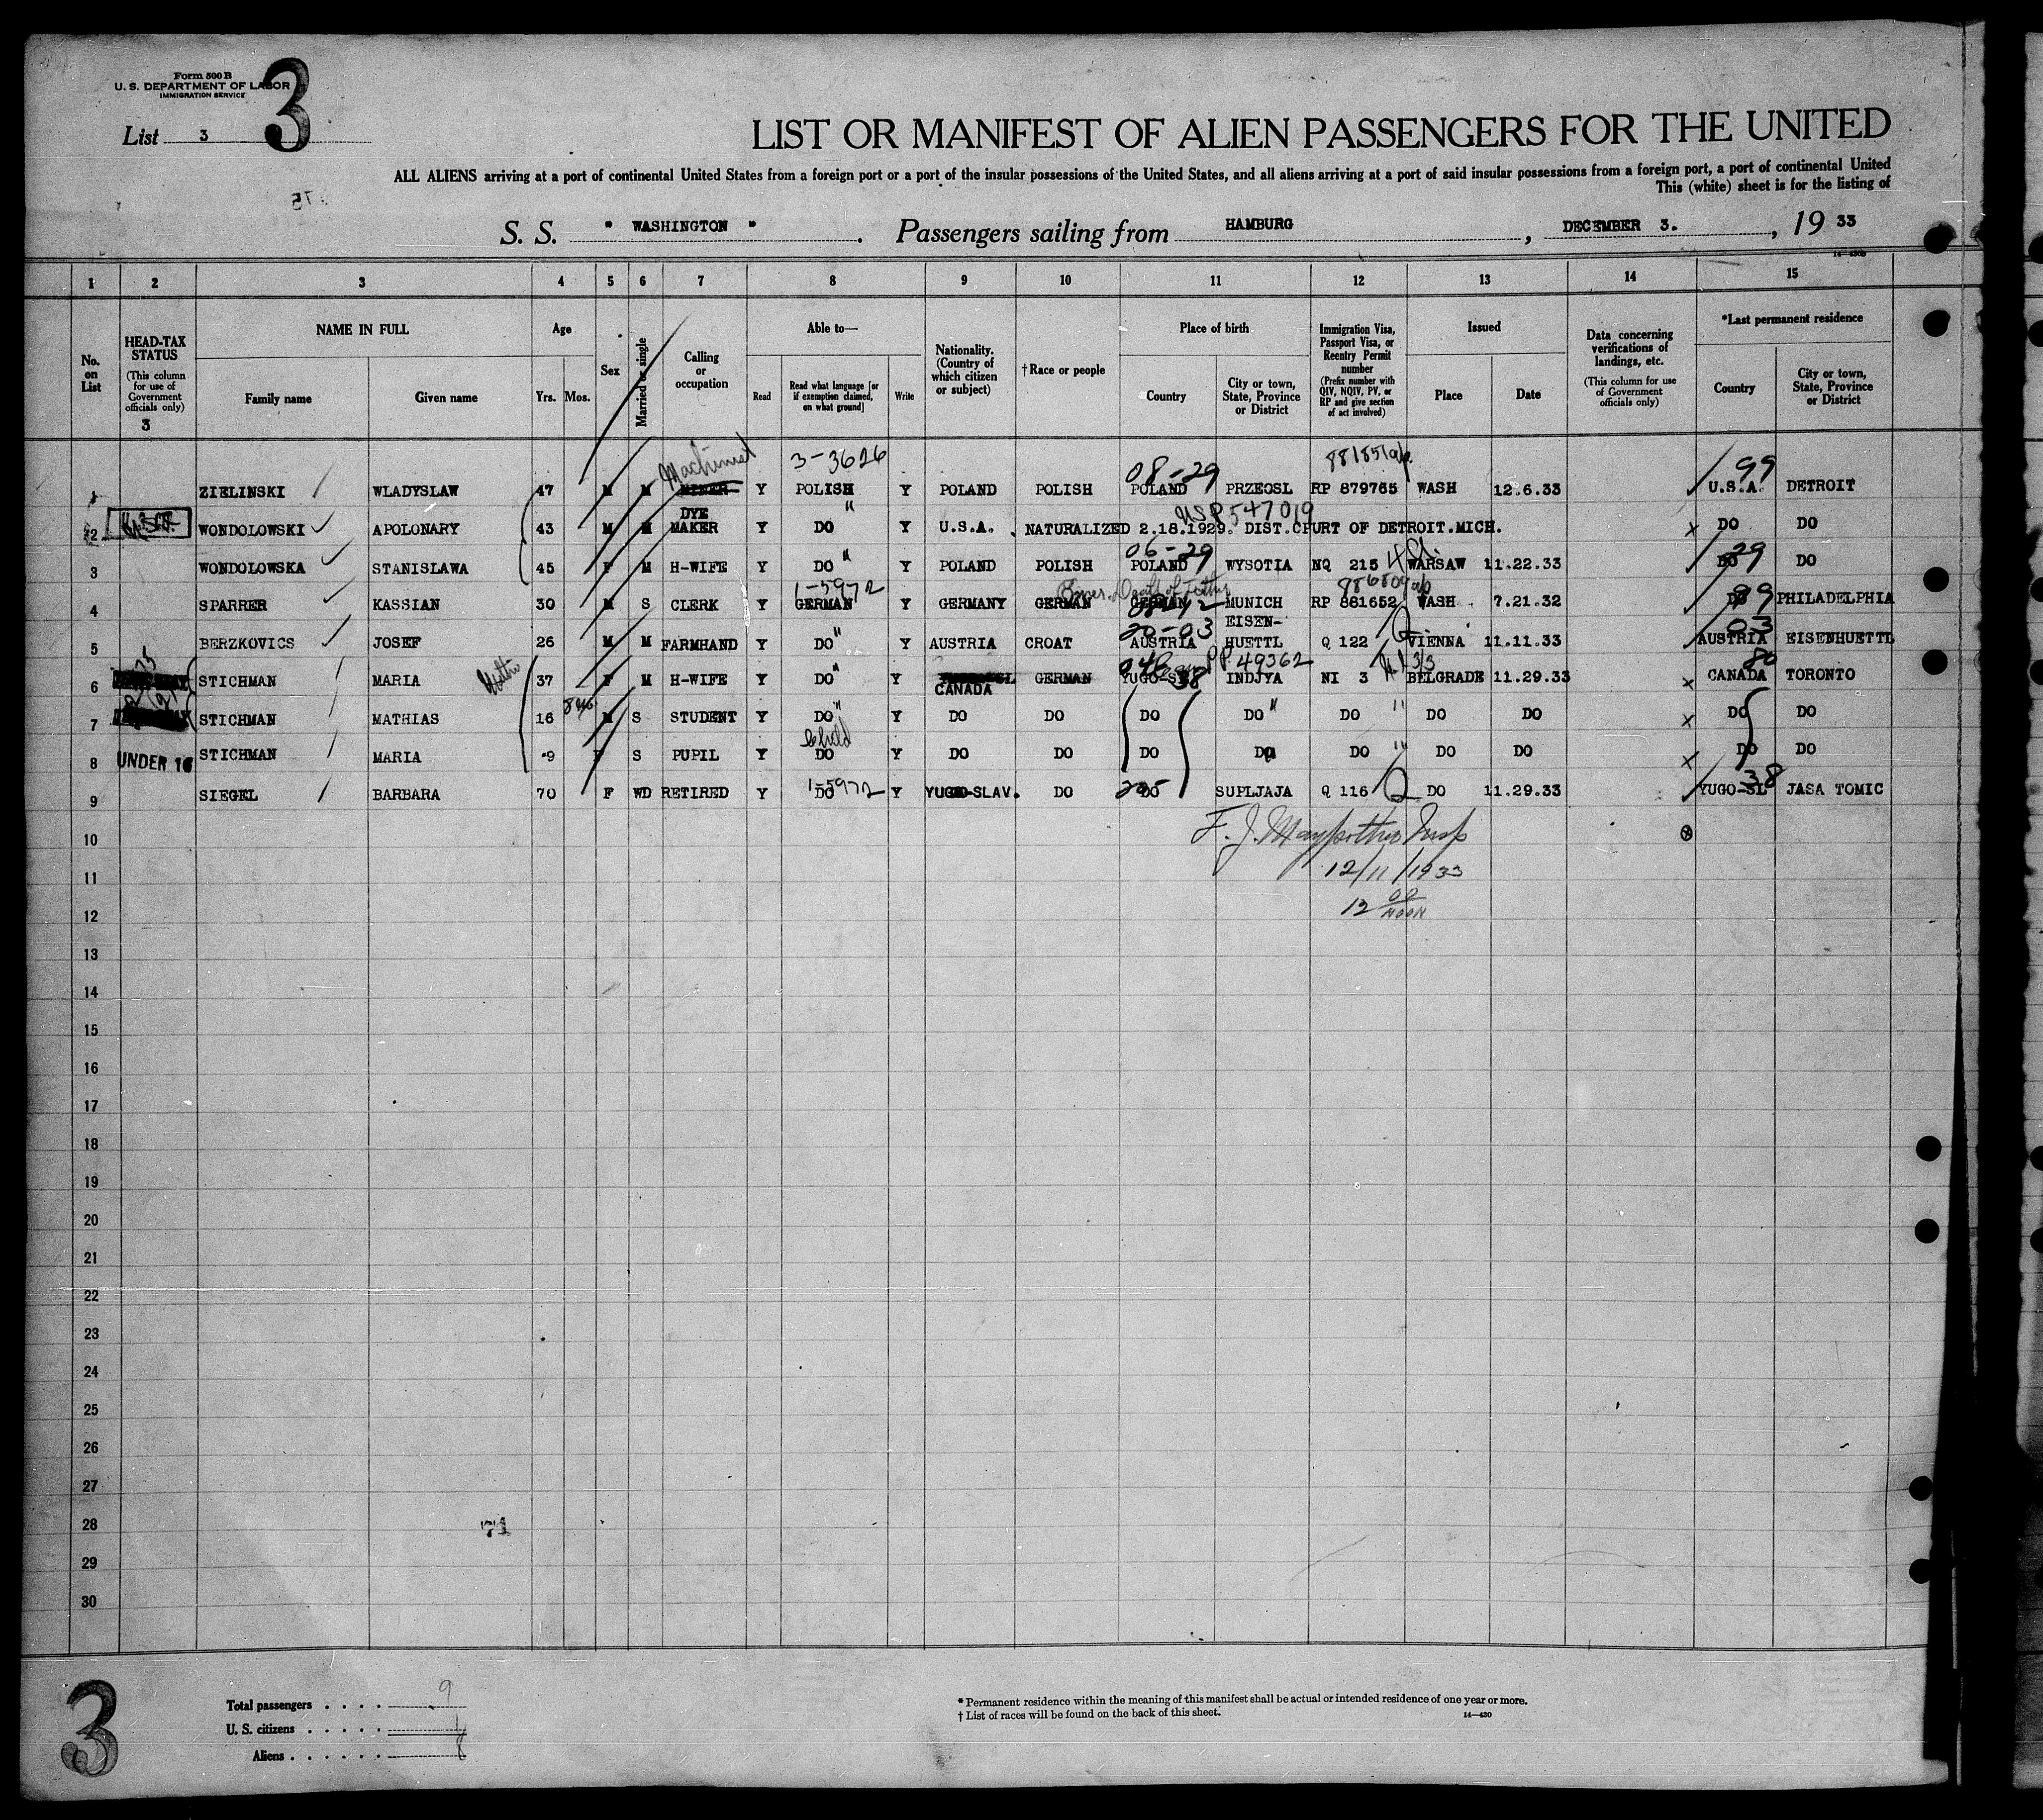 Form 500 B
U. S. DEPARTMENT OF LABOR
IMMIGRATION SERVICE
3
List 3
LIST OR MANIFEST OF ALIEN PASSENGERS FOR THE UNITED
ALL ALIENS arriving at a port of continental United States from a foreign port or a port of the insular possessions of the United States, and all aliens arriving at a port of said insular possessions from a foreign port, a port of continental United
This (white) sheet is for the listing of
S. S. " WASHINGTON " . Passengers sailing from HAMBURG , DECEMBER 3. , 19 33
1 2 3 4 5 6 7 8 9 10 11 12 13 14 15
No. on List
HEAD-TAX STATUS (This column for use of Government officials only)
3
NAME IN FULL
Family name
Given name
Age
Yrs. Mos.
Sex
Married or single
Calling or occupation
Able to—
Read
Read what language [or if exemption claimed, on what ground]
Write
Nationality. (Country of which citizen or subject)
†Race or people
Place of birth
Country
City or town, State, Province or District
Immigration Visa, Passport Visa, or Reentry Permit number (Prefix number with QIV, NQIV, PV, or RP and give section of act involved)
Issued
Place
Date
Data concerning verifications of landings, etc. (This column for use of Government officials only)
*Last permanent residence
Country
City or town, State, Province or District
Machinist 3-3626 08-29 99
1 ZIELINSKI WLADYSLAW 47 M M MINER Y POLISH Y POLAND POLISH POLAND PRZEOSL RP 879765 WASH 12.6.33 U.S.A. DETROIT
USP 547019
2 WONDOLOWSKI APOLONARY 43 M M DYE MAKER Y DO " Y U.S.A. NATURALIZED 2.18.1929. DIST.CPURT OF DETROIT.MICH. DO DO
06-29 29
3 WONDOLOWSKA STANISLAWA 45 F M H-WIFE Y DO " Y POLAND POLISH POLAND WYSOTIA NQ 215 WARSAW 11.22.33 DO DO
1-5972 99
4 SPARRER KASSIAN 30 M S CLERK Y GERMAN Y GERMANY GERMAN GERMAN MUNICH RP 881652 WASH 7.21.32 DO PHILADELPHIA
20-03 03
5 BERZKOVICS JOSEF 26 M M FARMHAND Y DO " Y AUSTRIA CROAT AUSTRIA EISEN-HUETTL Q 122 Q VIENNA 11.11.33 AUSTRIA EISENHUETTL
Mother PP 49362 80
6 STICHMAN MARIA 37 F M H-WIFE Y DO " Y CANADA GERMAN YUGO-SL INDJYA NI 3 BELGRADE 11.29.33 CANADA TORONTO
7 STICHMAN MATHIAS 16 M S STUDENT Y DO " Y DO DO DO DO " DO " DO DO DO DO
Child
8 UNDER 16 STICHMAN MARIA 9 F S PUPIL Y DO Y DO DO DO DO DO " DO DO DO DO
1-5972 38
9 SIEGEL BARBARA 70 F WD RETIRED Y DO Y YUGO-SLAV. DO DO SUPLJAJA Q 116 Q DO 11.29.33 YUGO-SL JASA TOMIC
10
11 12/11/1933
12 12 00 NOON
13
14
15
16
17
18
19
20
21
22
23
24
25
26
27
28
29
30
3
Total passengers . . . . 9
U. S. citizens . . . . . 1
Aliens . . . . . . 8
* Permanent residence within the meaning of this manifest shall be actual or intended residence of one year or more.
† List of races will be found on the back of this sheet.
14—430